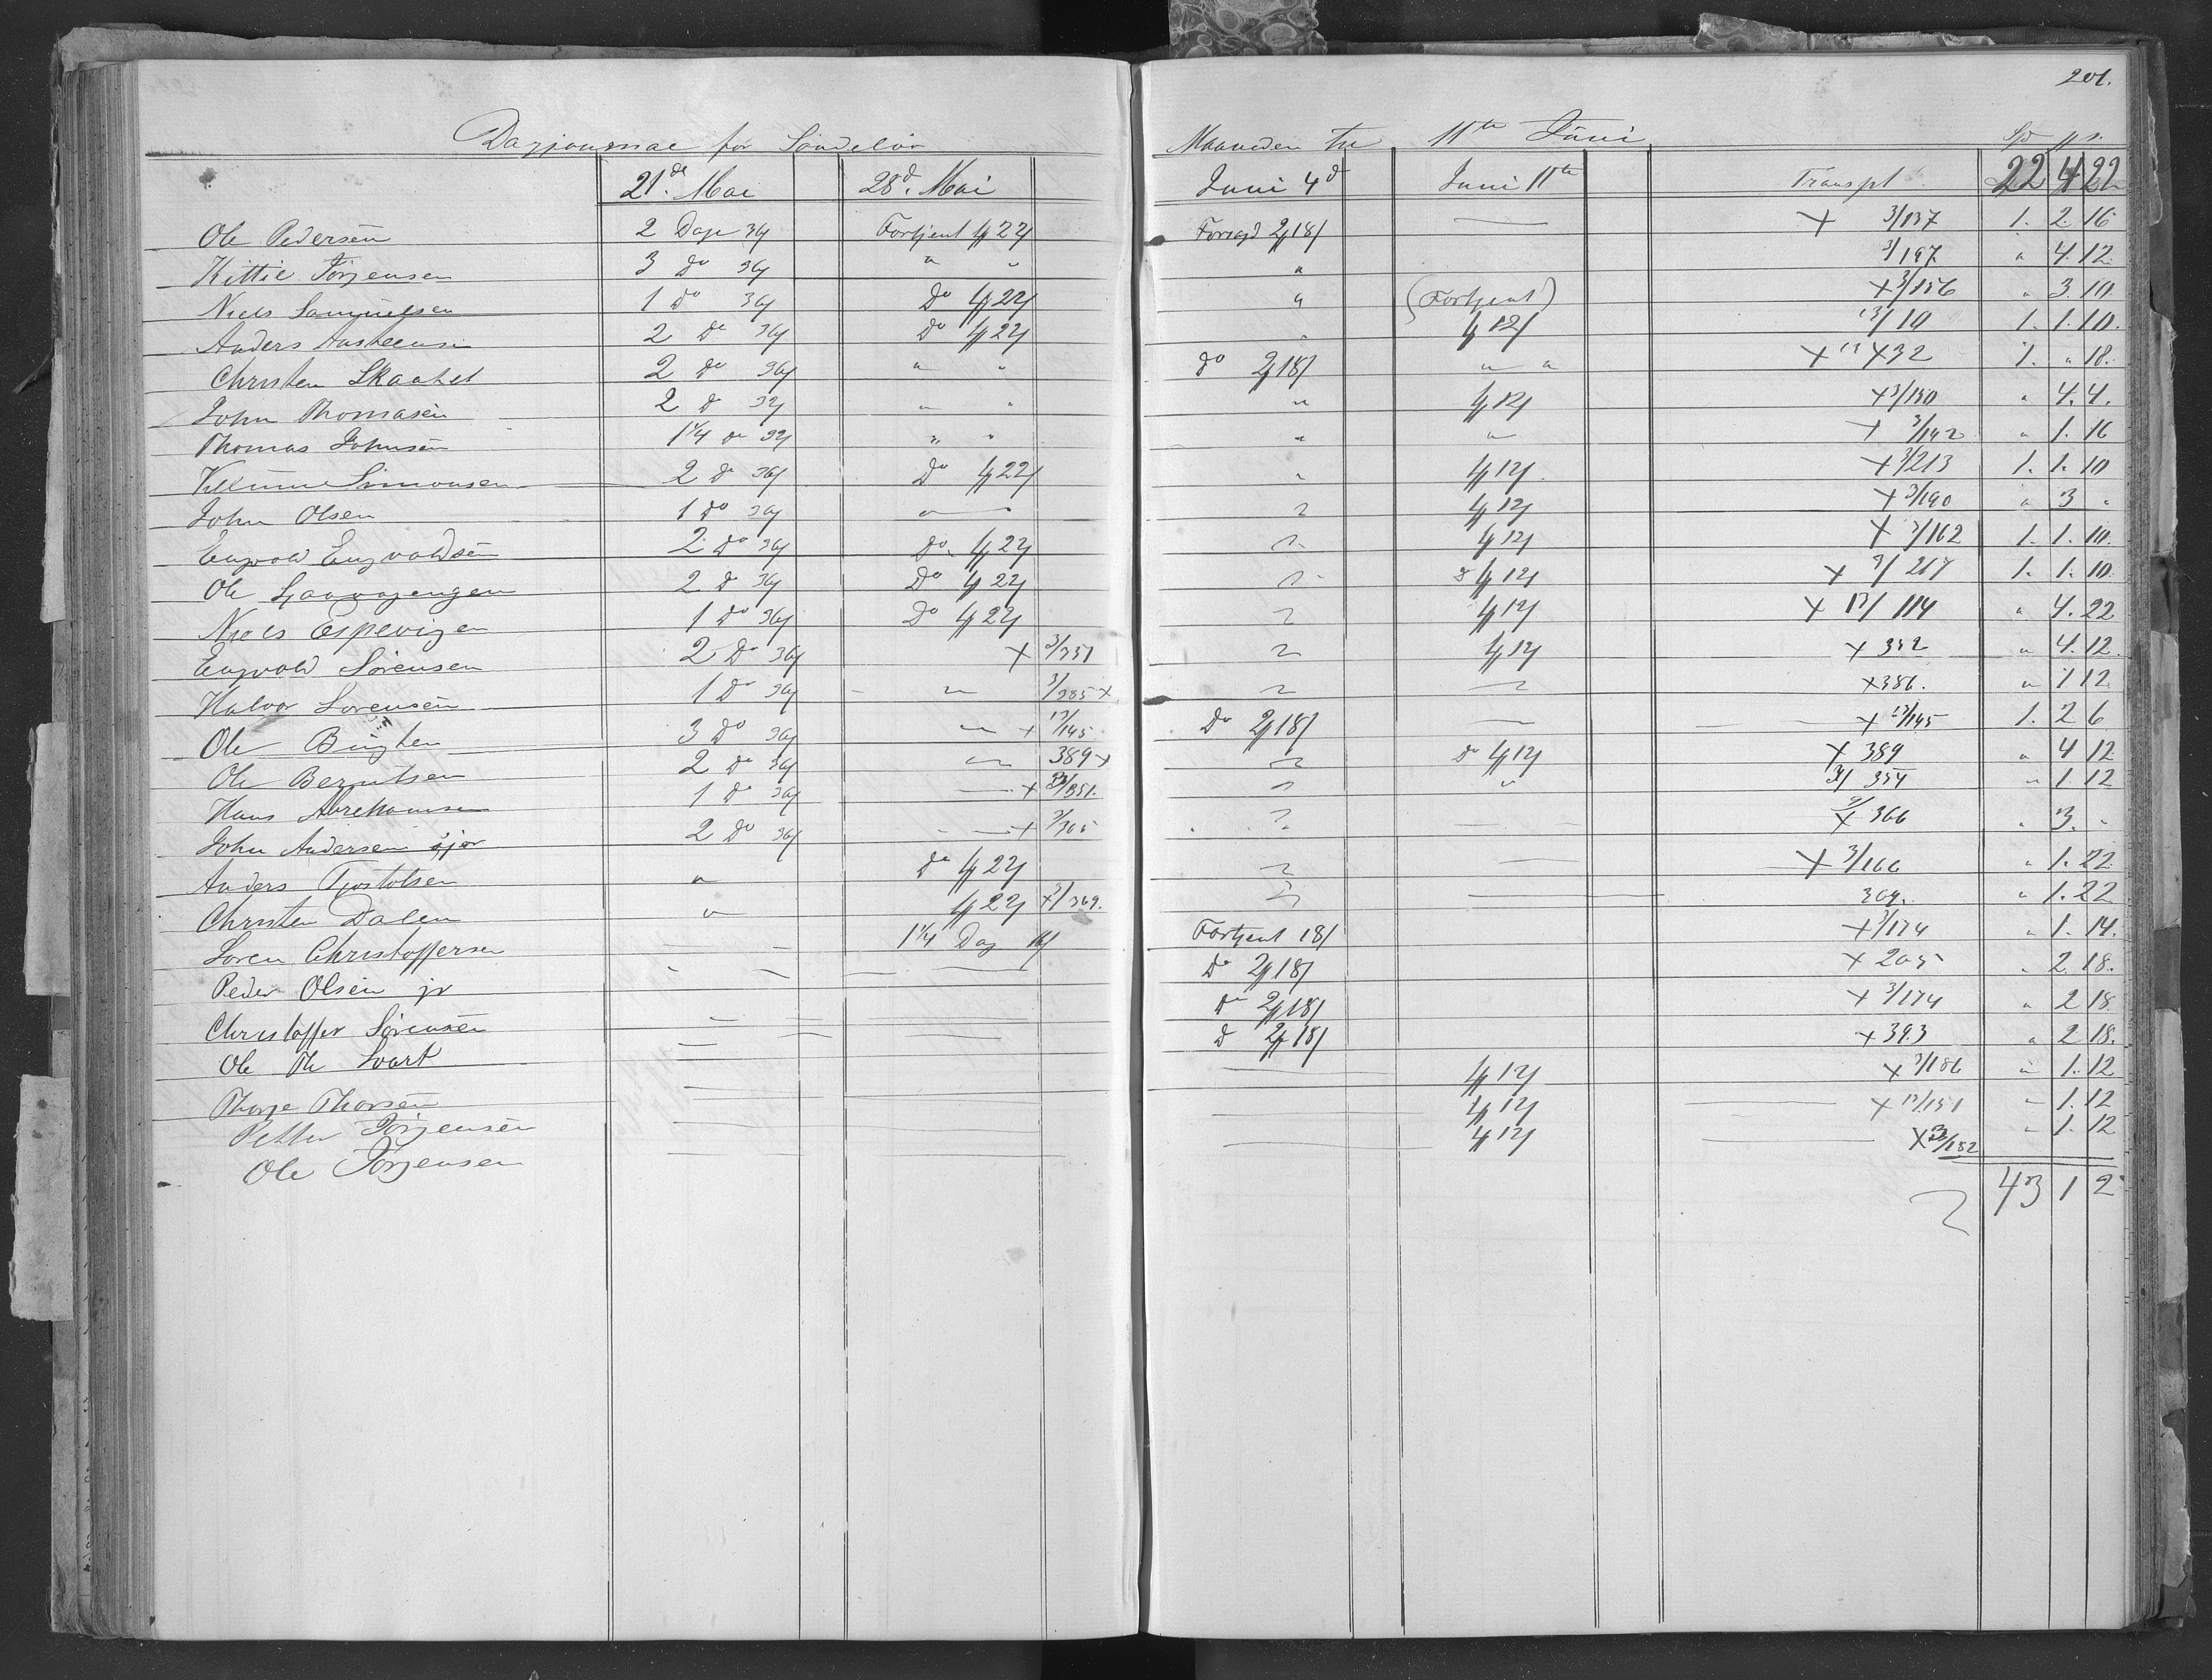 201.
Dagjournal for Søndeløv Maaneden til 11te Juni Sp
21de Mai 28d. Mai Juni 4d Juni 11te Transpt 22 4 22
Ole Pedersen 2 Dage 36 Fortjent 1 22 2 18 — × 3/137 1. 2 16
Kittil Jörgensen 3 do 36 " " " 3/197 " 4. 12
Niels Samuelsen 1 do 36 Do 1 22 " (Fortjent) × 3/156 " 3. 10
Anders 2 do 36 Do 1 22 " 1 12 13/10 1. 1. 10.
Christen Skaatet 2 do 36 " " do 2 18 " " × 432 1. " 18.
John Thomasen 2 do 32 " " " 1 12 × 3/150 " 4. 4.
Thomas Johnsen 1 1/4 do 32 " " " " × 3/142 " 1. 16
Simonsen 2 do 36 Do 1 22 " 1 12 × 3/213 1. 1. 10
John Olsen 1 do 36 " " " 1 12 × 3/190 " 3 "
Engvold Engvoldsen 2 do 36 Do 1 22 " 1 12 × 3/162 1. 1. 10.
Ole 2 do 36 Do 1 22 " 1 12 × 3/217 1. 1. 10
Niels Espevigen 1 do 36 Do 1 22 " 1 12 × 13/114 " 4. 22
Engvold Sörensen 2 Do 36 × 3/351 " 1 12 × 352 " 4. 12.
Halvor Sorensen 1 Do 36 " 3/385 × " " × 386. " 1 12
Ole 3 Do 36 " × 13/145 Do 2 18 — × 13/145 1. 2 6
Ole Berntsen 2 do 36 " 389 × " do 1 12 × 389 " 4 12
Hans Abrehamsen 1 do 36 — × 3/351. " " 3/354 " 1. 12
John Andersen 2 Do 36 — × 3/365 " × 3/366 " 3. "
Anders Tjostolsen " do 1 22 " × 3/166 " 1. 22
Christen Dalen " 1 22 × 3/369. " 369. " 1. 22
Soren Christoffersen — 1 1/4 Dag 16 Fortjent 18 × 3/174 " 1. 14.
Peder Olsen jr — — Do 2 18 × 205 " 2 18.
Christoffer Sörensen — — do 2 18 × 3/174 " 2 18
Ole Th Svart — — d 2 18 × 393 " 2 18.
Thorje Thorsen — — — 1 12 × 3/186 " 1. 12
Petter Törjensen — — — 1 12 — × 13/151 " 1. 12
Ole Törjensen — — — 1 12 — × 3/152 " 1. 12
43 1 2